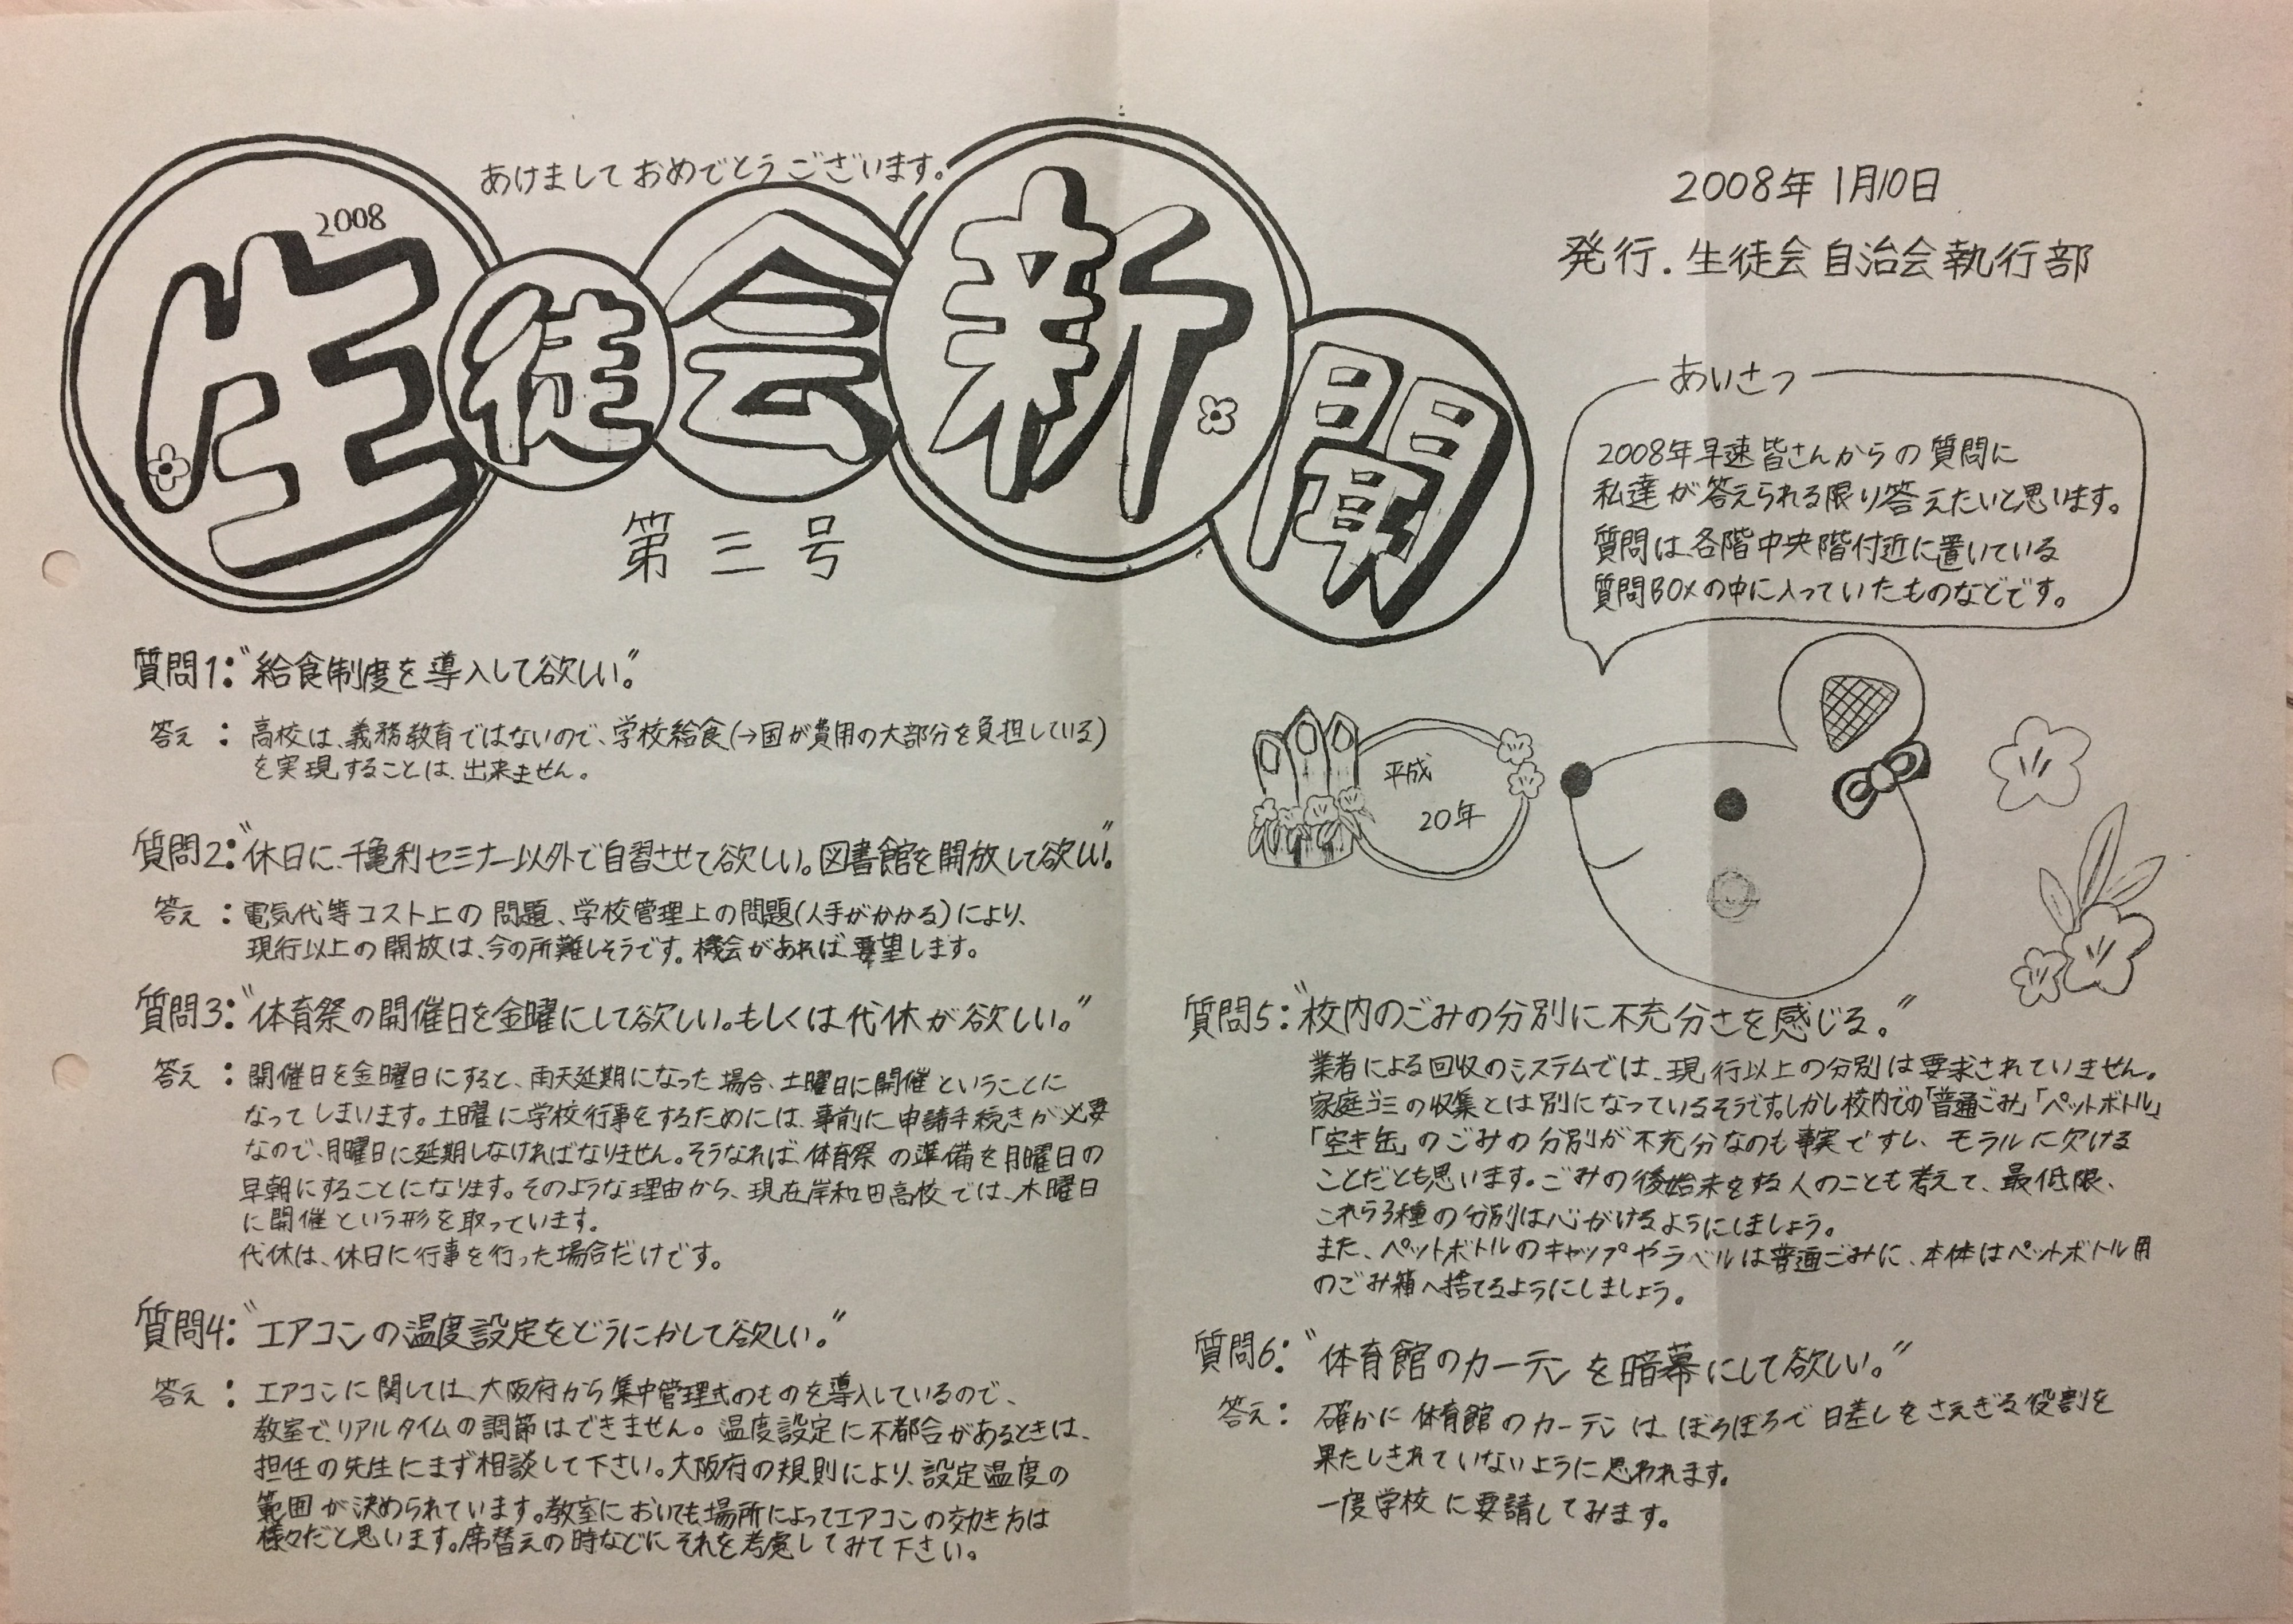 あけましておめでとうございます。
2008
生徒会新聞
第三号
2008年1月10日
発行.生徒会自治会執行部
あいさつ
2008年早速皆さんからの質問に
私達が答えられる限り答えたいと思います。
質問は各階中央階付近に置いている
質問BOXの中に入っていたものなどです。
平成
20年
質問1:"給食制度を導入して欲しい。"
答え:高校は、義務教育ではないので、学校給食(→国が費用の大部分を負担している)
を実現することは、出来ません。
質問2:"休日に、千亀利セミナー以外で自習させて欲しい。図書館を開放して欲しい。"
答え:電気代等コスト上の問題、学校管理上の問題(人手がかかる)により、
現行以上の開放は、今の所難しそうです。機会があれば、要望します。
質問3:"体育祭の開催日を金曜にして欲しい。もしくは代休が欲しい。"
答え:開催日を金曜日にすると、雨天延期になった場合、土曜日に開催ということに
なってしまいます。土曜に学校行事をするためには、事前に申請手続きが必要
なので、月曜日に延期しなければなりません。そうなれば、体育祭の準備を月曜日の
早朝にすることになります。そのような理由から、現在岸和田高校では、木曜日
に開催という形を取っています。
代休は、休日に行事を行った場合だけです。
質問4:"エアコンの温度設定をどうにかして欲しい。"
答え:エアコンに関しては、大阪府から集中管理式のものを導入しているので、
教室で、リアルタイムの調節はできません。温度設定に不都合があるときは、
担任の先生にまず相談して下さい。大阪府の規則により、設定温度の
範囲が決められています。教室においても場所によってエアコンの効き方は
様々だと思います。席替えの時などにそれを考慮してみて下さい。
質問5:"校内のごみの分別に不充分さを感じる。"
業者による回収のシステムでは、現行以上の分別は要求されていません。
家庭ゴミの収集とは別になっているそうです。しかし校内での「普通ごみ」「ペットボトル」
「空き缶」のごみの分別が不充分なのも事実ですし、モラルに欠ける
ことだとも思います。ごみの後始末をする人のことも考えて、最低限、
これら3種の分別は心がけるようにしましょう。
また、ペットボトルのキャップやラベルは普通ごみに、本体はペットボトル用
のごみ箱へ捨てるようにしましょう。
質問6:"体育館のカーテンを暗幕にして欲しい。"
答え:確かに体育館のカーテンは、ぼろぼろで日差しをさえぎる役割を
果たしきれていないように思われます。
一度学校に要請してみます。